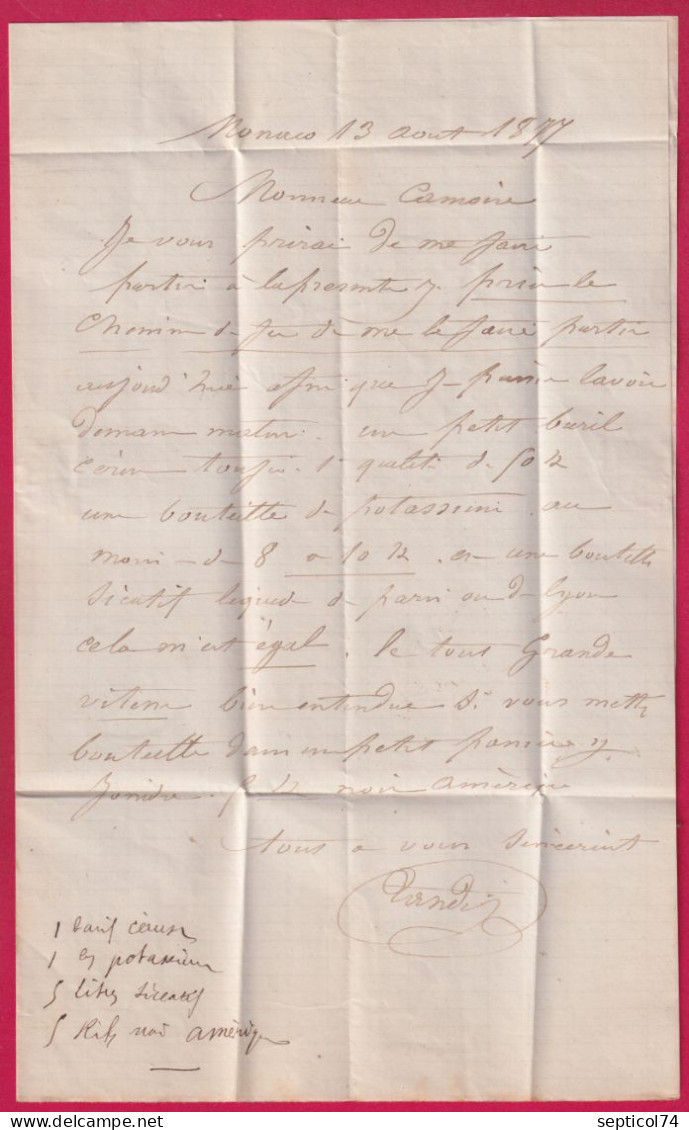 Monaco 13 aout 1877
Monsieur Camoire
Je vous prirai de me faire
partir à la presente
Chemin de fer de me le faire partir
aujourd'hui afin que Je puisse lavoir
demain matin. un petit baril
1e qualité de 50 K
une bouteille de potassium au
moin de 8 a 10 K. et une bouteille
Sicatif liquide de paris ou de lyon
cela m'est égal. le tous Grande
vitesse bien entendue Si vous mettez
bouteille dans un petit panier y
Joindre 5 K noir amérique
tous a vous Sincerint
1 baril céruse
1 potassium
5 litres siccatif
5 Kilos noir amérique
septicol74